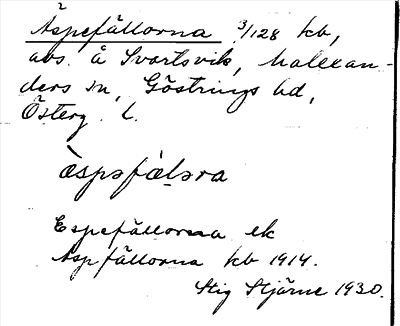 Äspefällorna 3/128 kb,
abs. å Svartsvik, Malexan-
ders sn, Göstrings hd,
Österg. l.
ὰspəfὰl̥əra
Espefällorna ek
Aspfällorna kb 1914.
Stig Stjärne 1930.